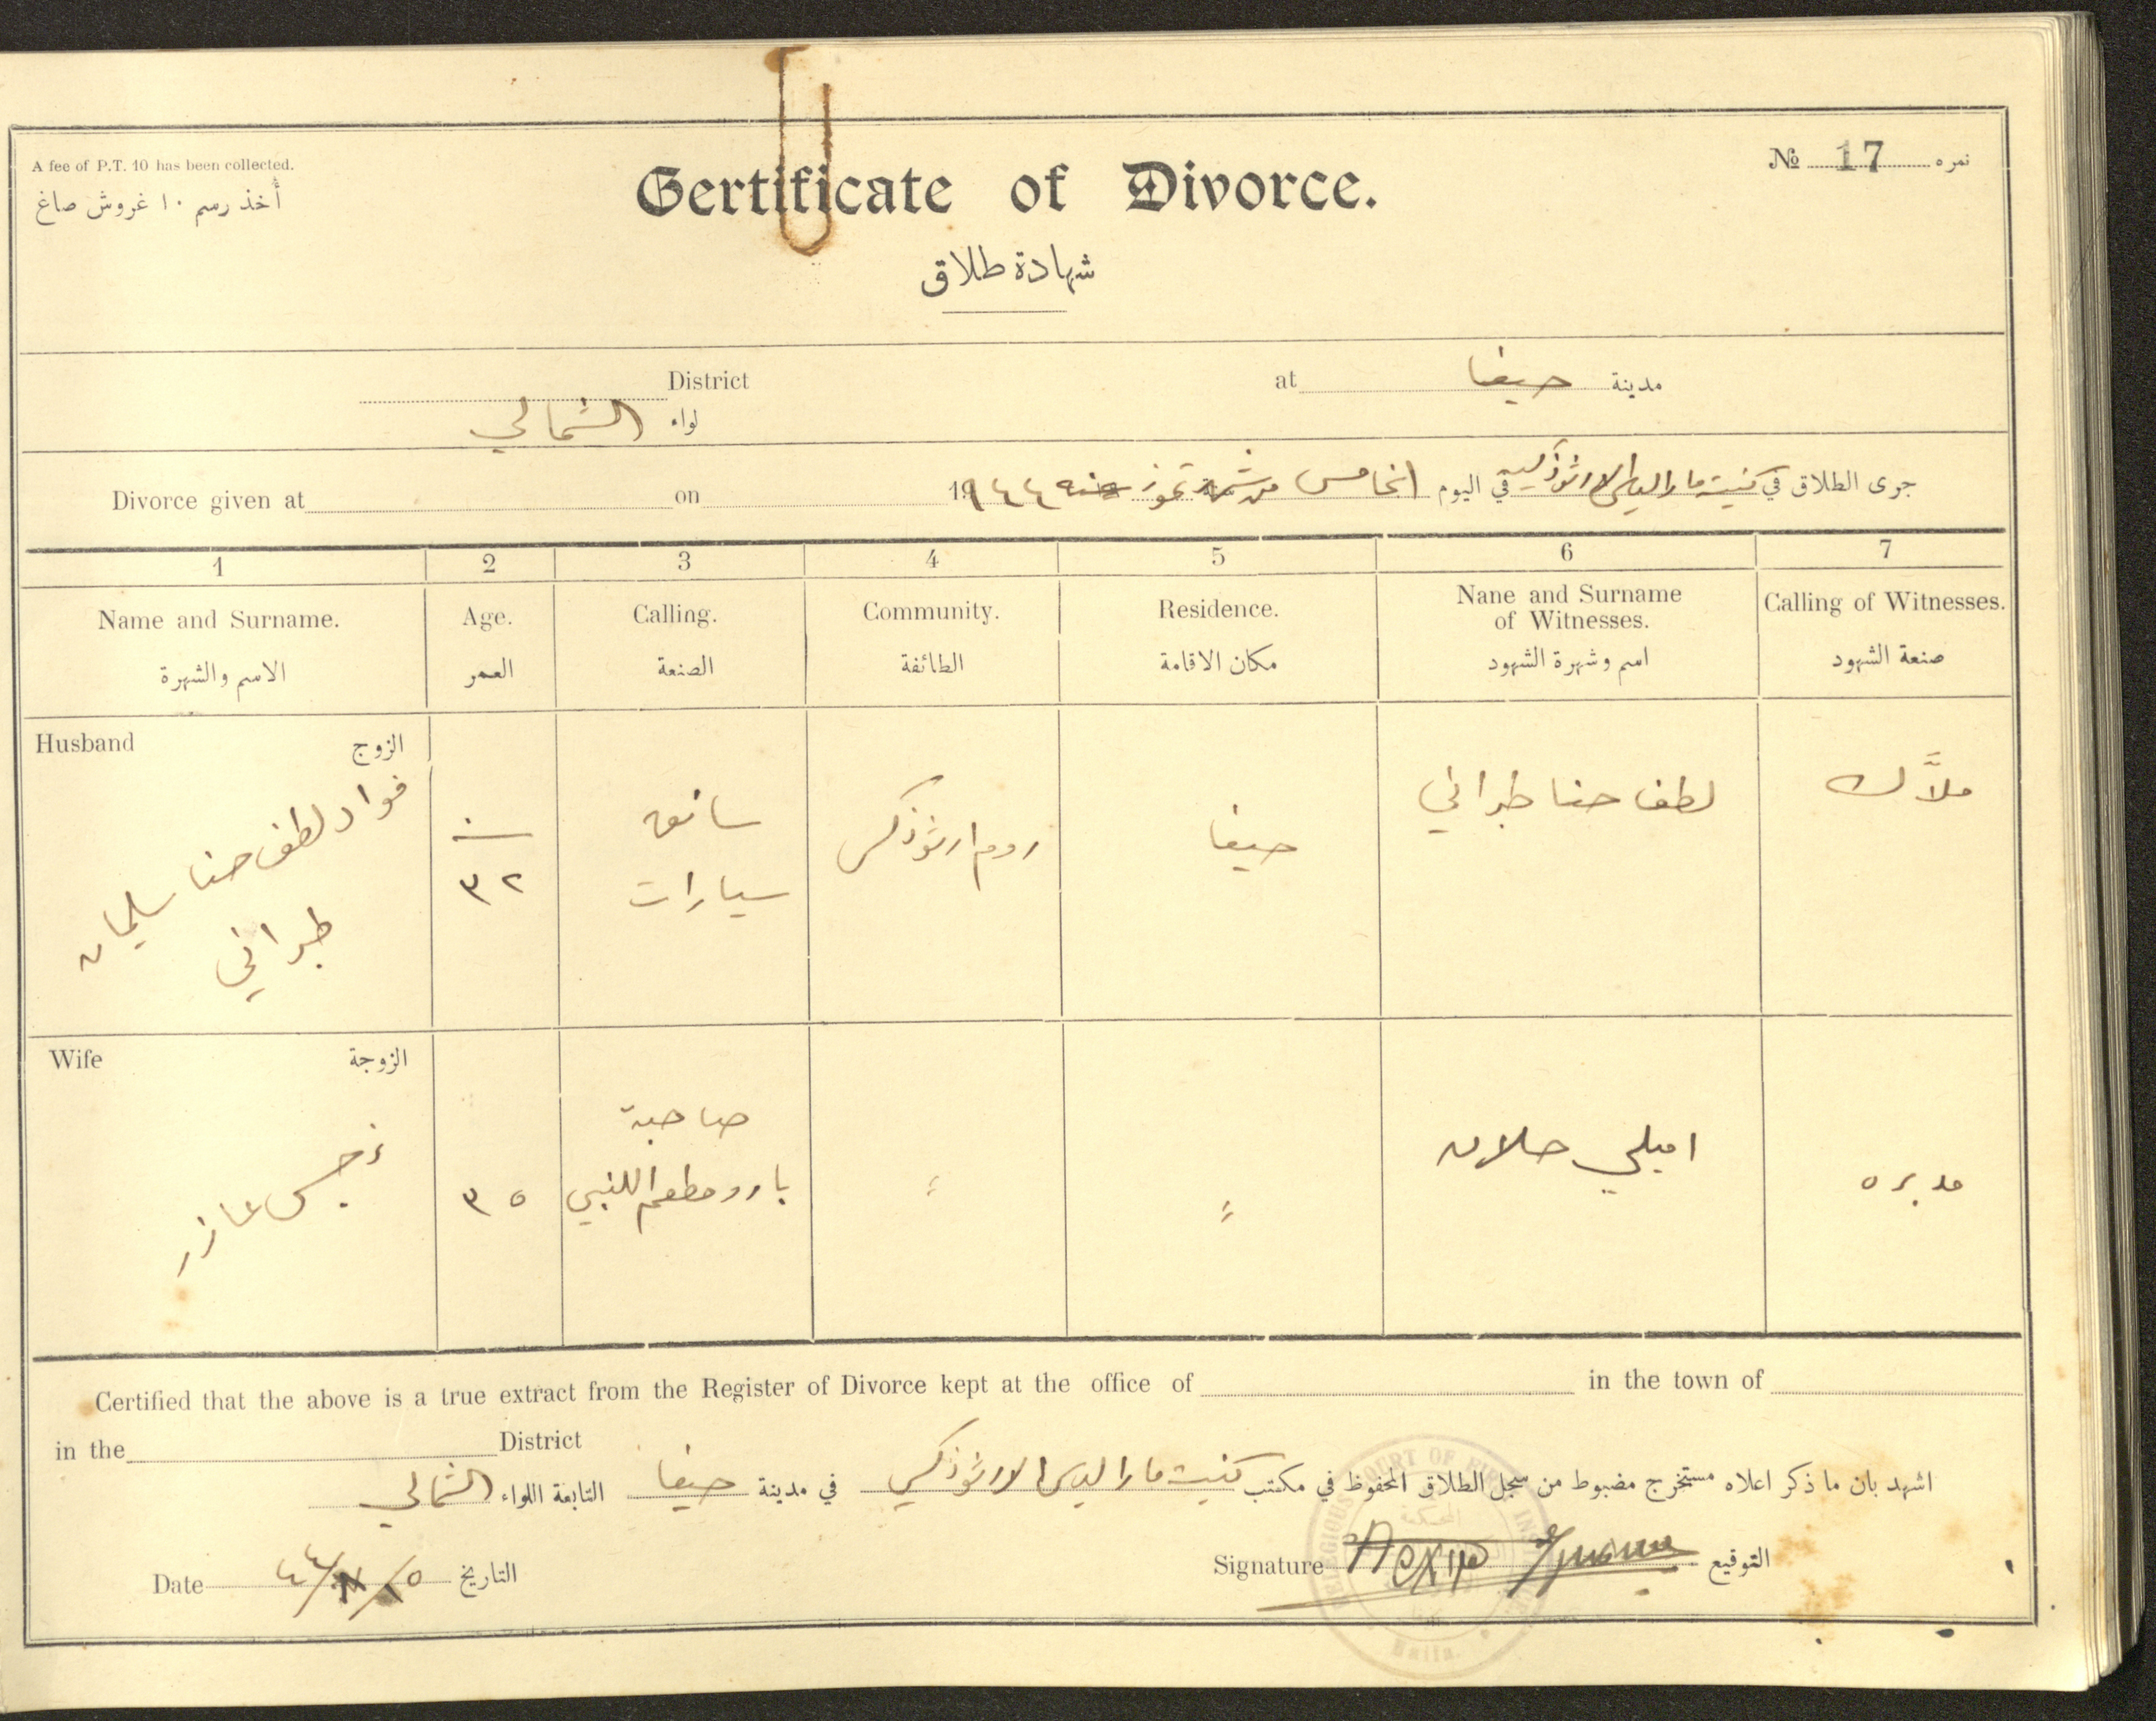 A fee of P.T. 10 has been collected.
أخذ رسم ١٠ غروش صاغ
Certificate of Divorce.
№ 17 نمره
شهادة طلاق
District
at حيفا مدينة
لواء الشمالي
Divorce given at on
جرى الطلاق في كنيسة مار الياس الارثوذكسية في اليوم الخامس من شهر تموز سنة ١٩٤٤
1 2 3 4 5 6 7
Name and Surname. Age. Calling. Community. Residence. Nane and Surname of Witnesses. Calling of Witnesses.
الاسم والشهرة العمر الصنعة الطائفة مكان الاقامة اسم وشهرة الشهود صنعة الشهود
Husband الزوج
فواد لطف حنا سليمان
طبراني
سنة
٣٢
سائق
سيارات
روم ارثوذكس
حيفا
لطف حنا طبراني
ملاّك
Wife الزوجة
نرجس عازر
٣٥
صاحبة
بار ومطعم اللنبي
"
"
اميلي حلاق
مدبره
Certified that the above is a true extract from the Register of Divorce kept at the office of in the town of
in the District
اشهد بان ما ذكر اعلاه مستخرج مضبوط من سجل الطلاق المحفوظ في مكتب كنيسة مار الياس الارثوذكسي في مدينة حيفا التابعة اللواء الشمالي
Date ٤٤/ /٥ التاريخ
Signature التوقيع
RELIGIOUS COURT OF FIRST INS
Haifa.